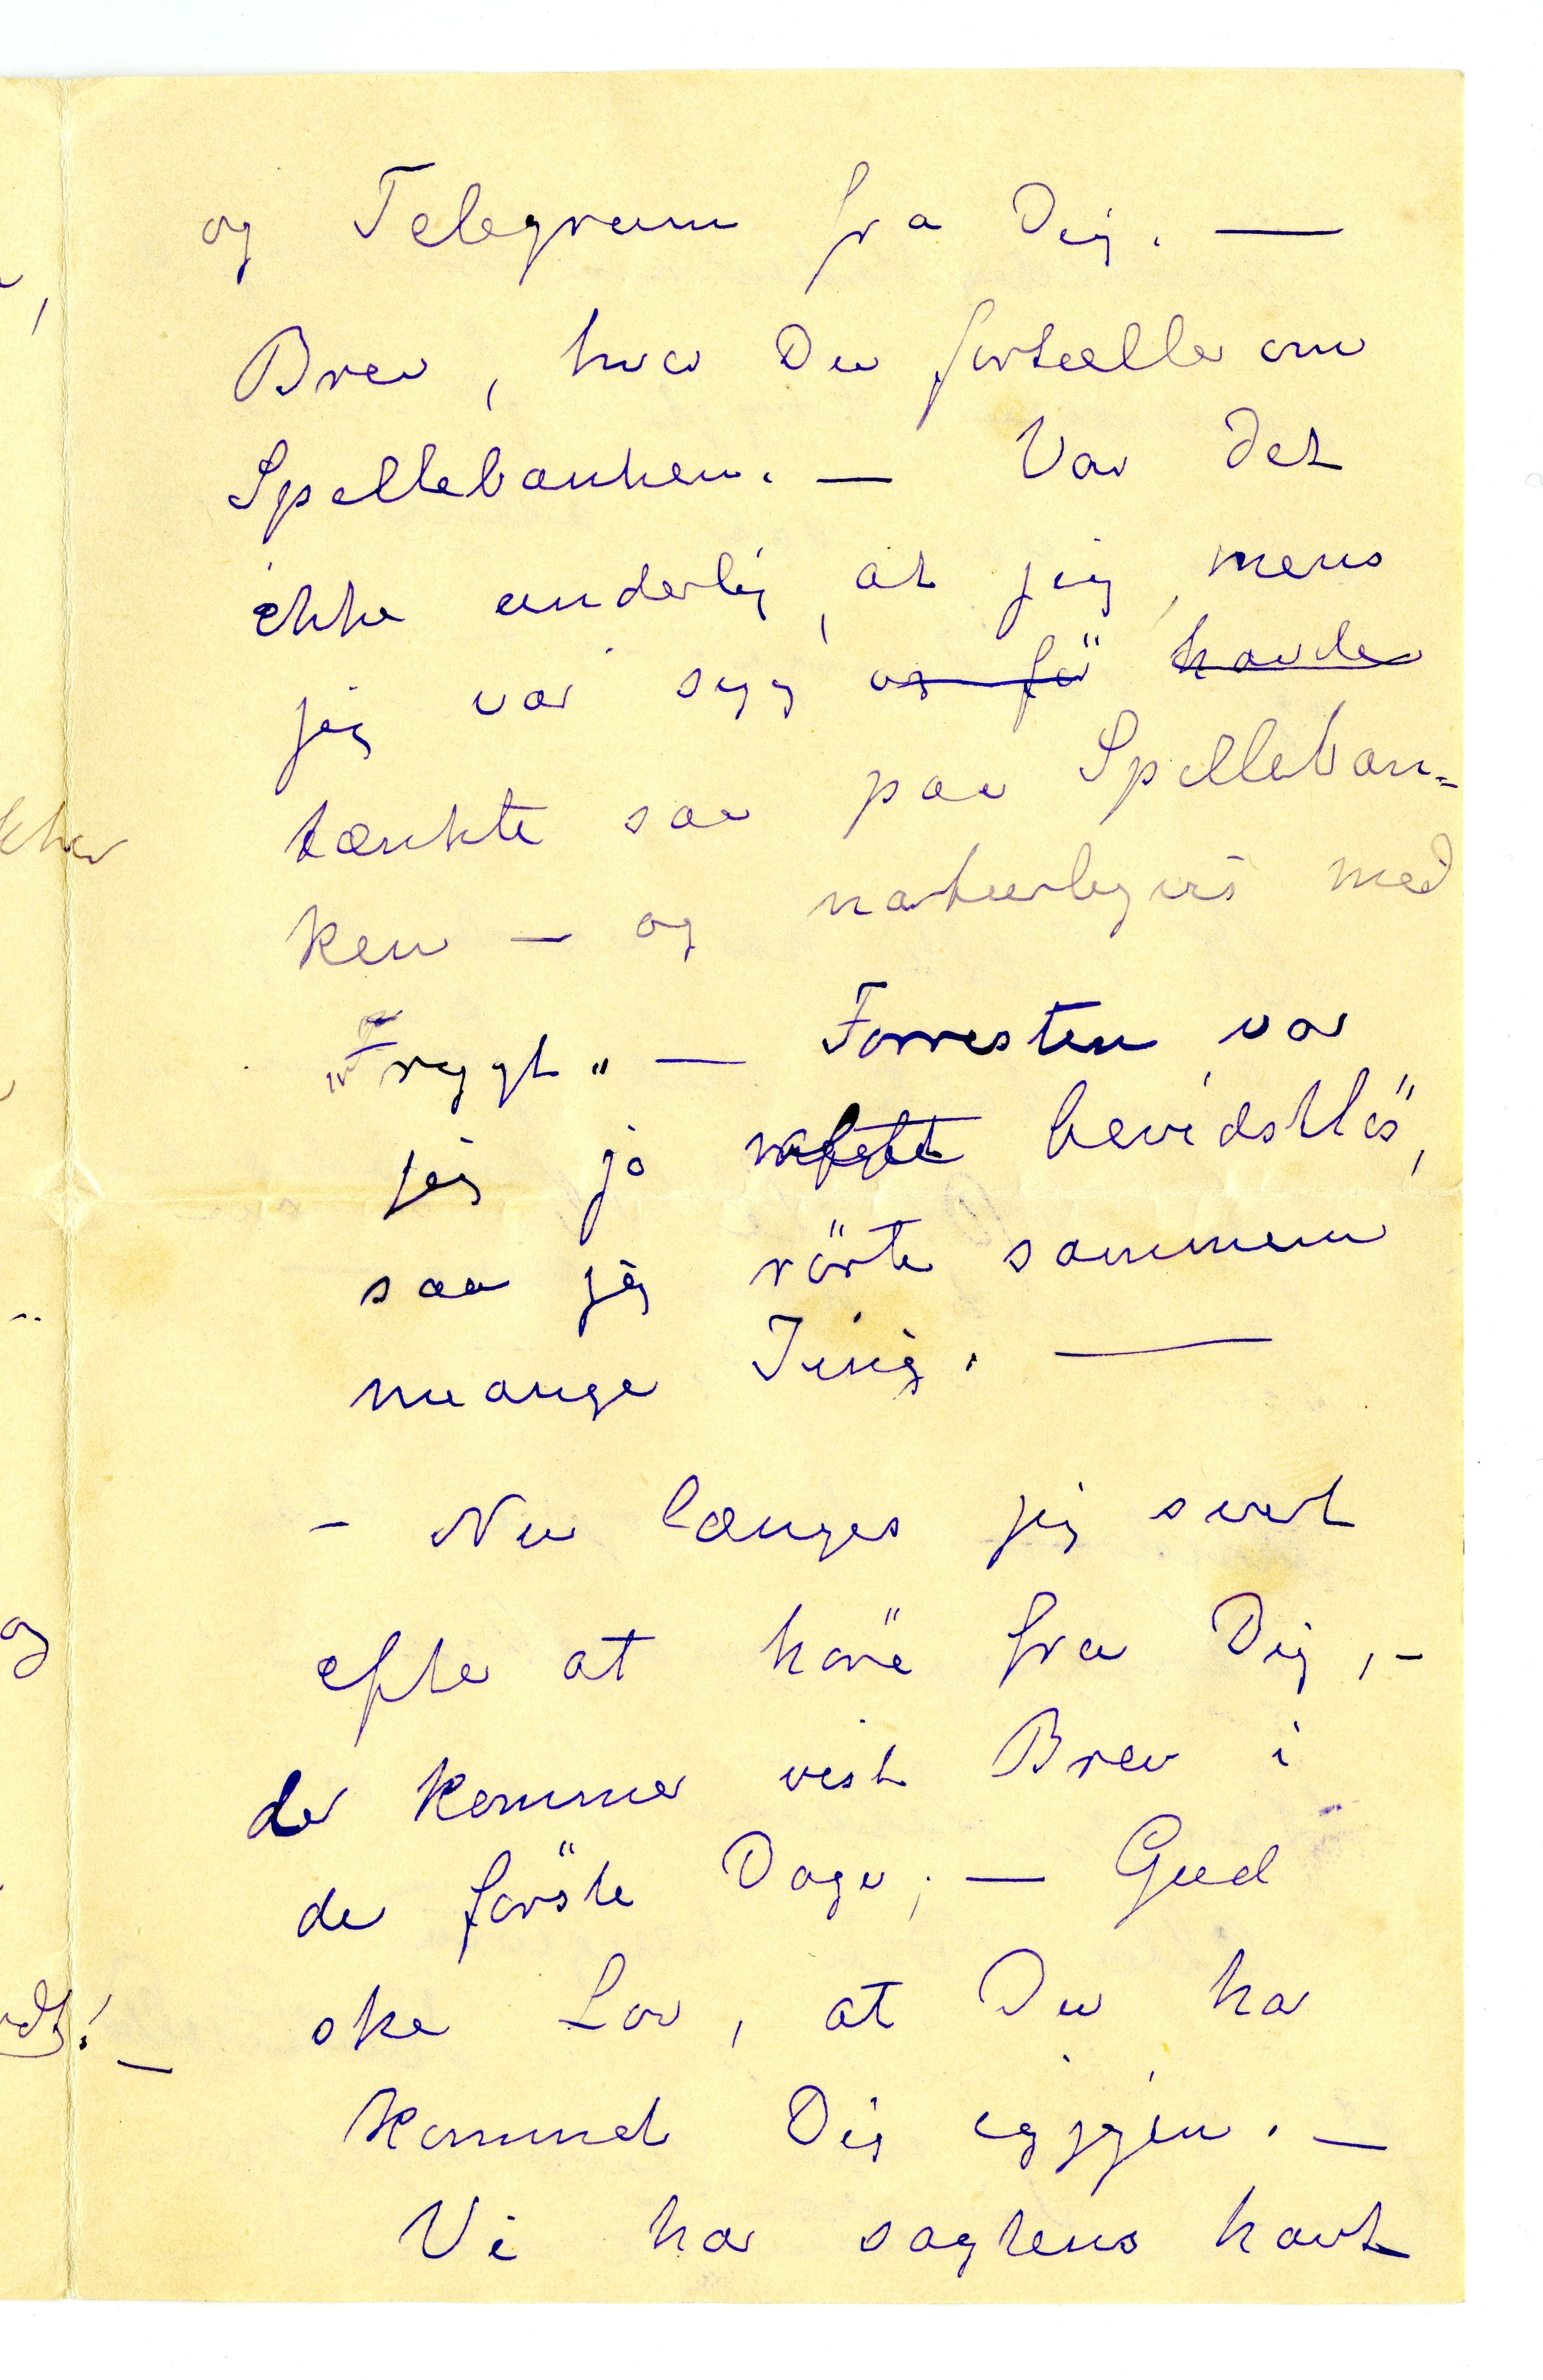 og Telegram fra Dig. —
Brev, hva Du fortælle om
Spellebanken. — Var det
ikke underlig, at jeg, mens
jeg var syg og fö havde
tænkte saa paa Spelleban=
ken — og naturligvis med
Frygt„ — Forresten var
jeg jo bevidstlös,
saa jeg rörte sammen
mange Ting. —
- Nu længes jeg svert
efter at höre fra Dig, -
der kommer vist Brev i
de förste Dage; — Gud
ske Lov, at Du har
kommet Dig iggjen. —
Vi har sagtens havt